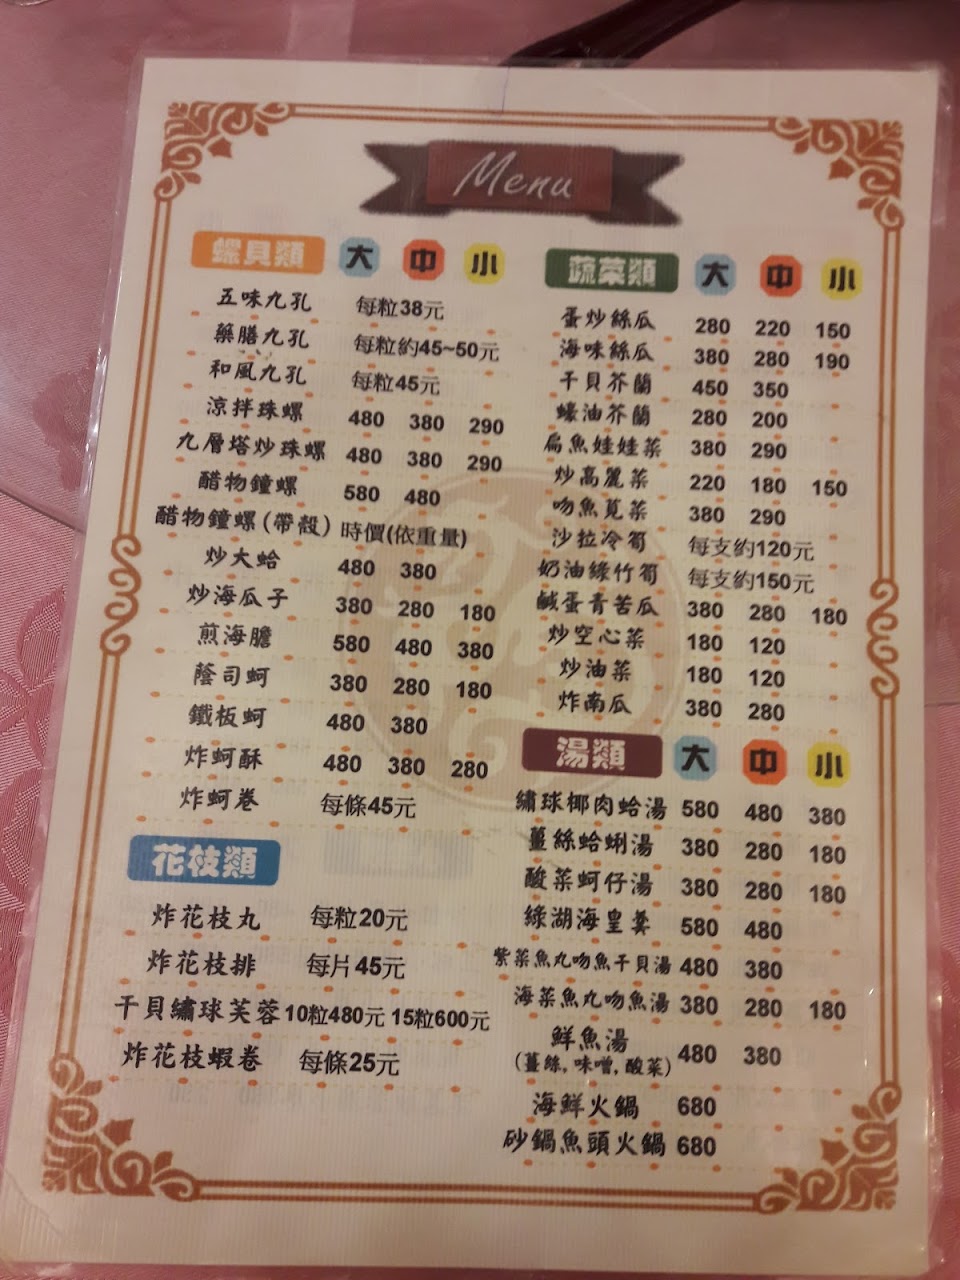 Menu
螺貝類 大 中 小
五味九孔 每粒38元
藥膳九孔 每粒約45~50元
和風九孔 每粒45元
涼拌珠螺 480 380 290
九層塔炒珠螺 480 380 290
醋物鐘螺 580 480
醋物鐘螺(帶殼) 時價(依重量)
炒大蛤 480 380
炒海瓜子 380 280 180
煎海膽 580 480 380
蔭司蚵 380 280 180
鐵板蚵 480 380
炸蚵酥 480 380 280
炸蚵卷 每條45元
花枝類
炸花枝丸 每粒20元
炸花枝排 每片45元
干貝繡球芙蓉 10粒480元 15粒600元
炸花枝蝦卷 每條25元
蔬菜類 大 中 小
蛋炒絲瓜 280 220 150
海味絲瓜 380 280 190
干貝芥蘭 450 350
蠔油芥蘭 280 200
扁魚娃娃菜 380 290
炒高麗菜 220 180 150
吻魚莧菜 380 290
沙拉冷筍 每支約120元
奶油綠竹筍 每支約150元
鹹蛋青苦瓜 380 280 180
炒空心菜 180 120
炒油菜 180 120
炸南瓜 380 280
湯類 大 中 小
繡球椰肉蛤湯 580 480 380
薑絲蛤蜊湯 380 280 180
酸菜蚵仔湯 380 280 180
綠湖海皇羹 580 480
紫菜魚丸吻魚干貝湯 480 380
海菜魚丸吻魚湯 380 280 180
鮮魚湯 480 380
(薑絲,味噌,酸菜)
海鮮火鍋 680
砂鍋魚頭火鍋 680